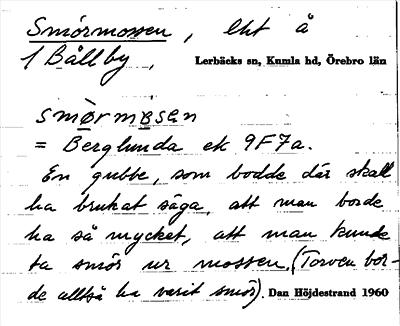 Smörmossen, lht å
1 Bållby,
Lerbäcks sn, Kumla hd, Örebro län
smò̀rmɵsan
= Berglunda ek 9F7a.
En gubbe, som bodde där skall
ha brukat säga, att man borde
ha så mycket, att man kunde
ta smör ur mossen. (Torven bor-
de alltså ha varit smör). Dan Höjdestrand 1960